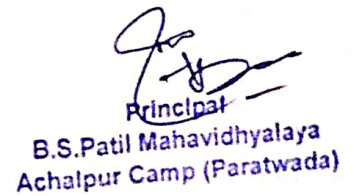 Principal
B.S.Patil Mahavidhyalaya
Achalpur Camp (Paratwada)